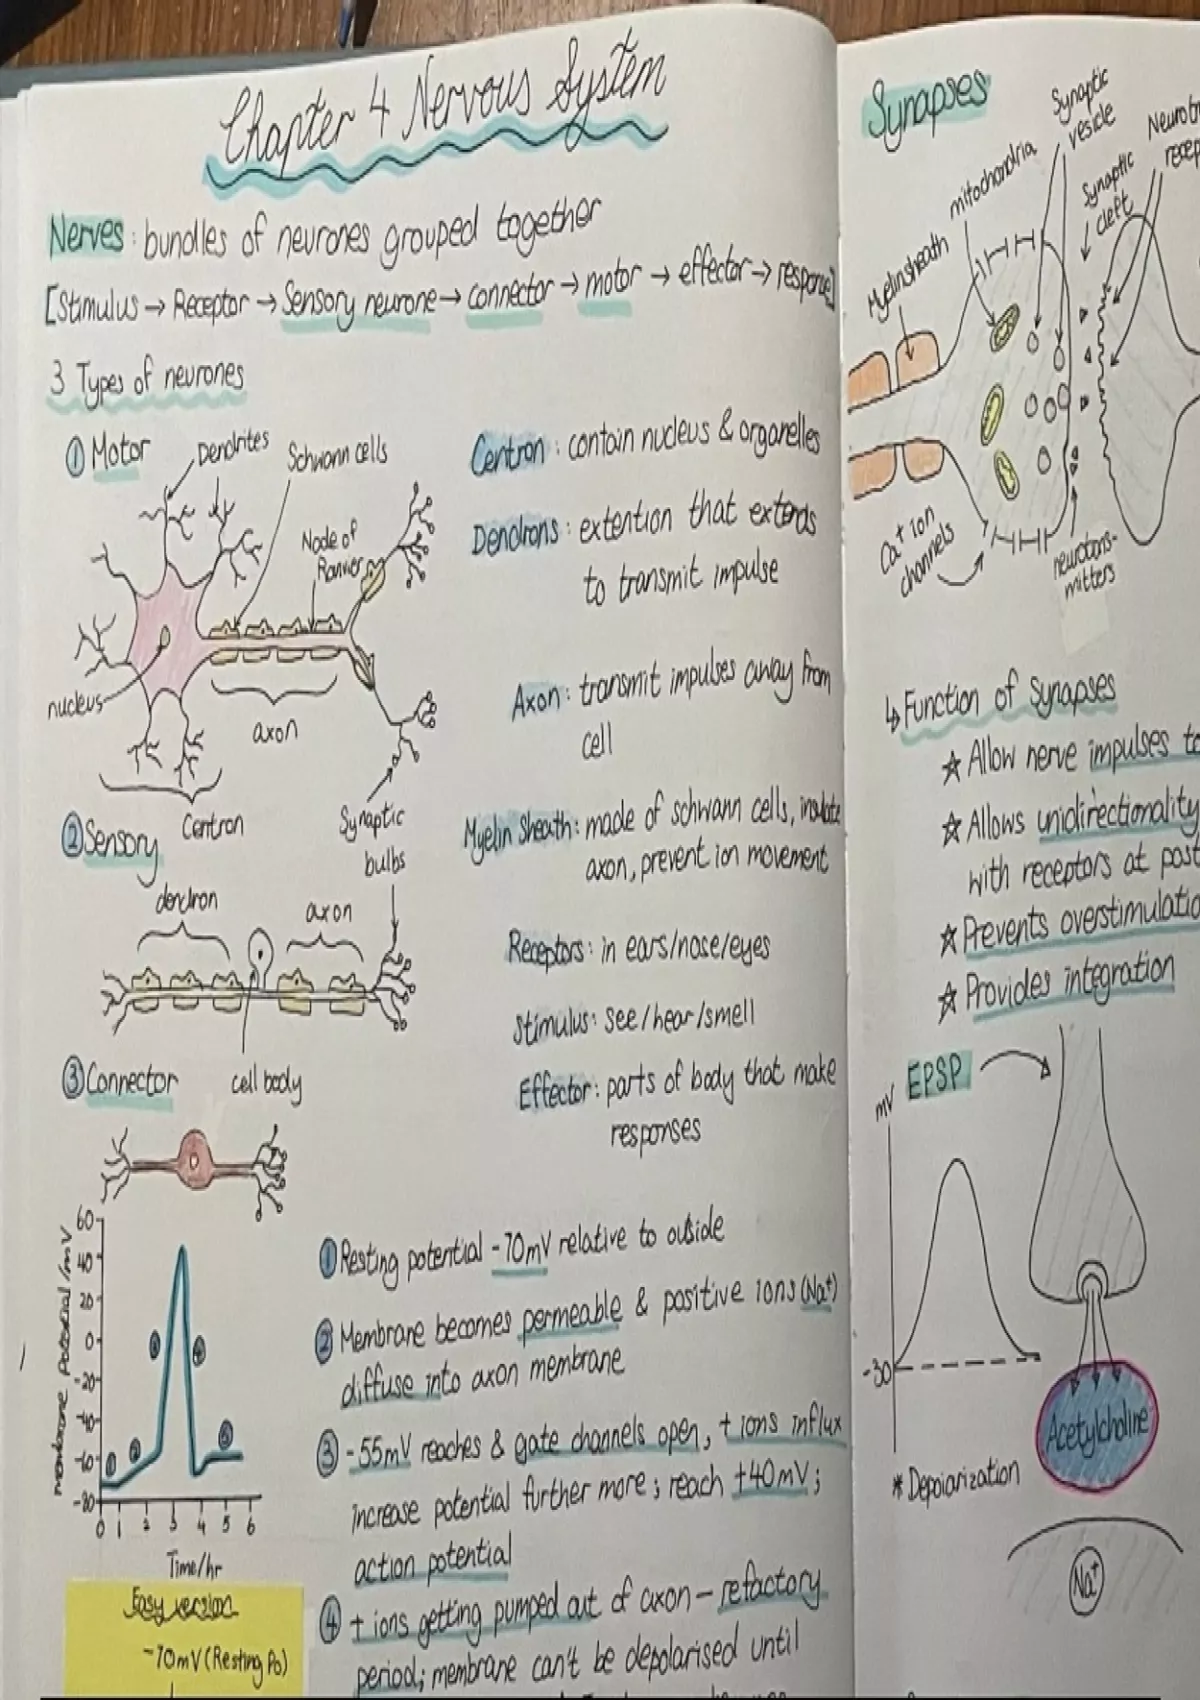 Chapter 4 Nervous System
Nerves: bundles of neurones grouped together
[Stimulus → Receptor → Sensory neurone → connector → motor → effector → response]
3 Types of neurones
① Motor
Dendrites
Schwann cells
Node of
Ranvier
nucleus
axon
Centron
Synaptic
bulbs
② Sensory
dendron
axon
cell body
③ Connector
Centron: contain nucleus & organelles
Dendrons: extention that extends
to transmit impulse
Axon: transmit impulses away from
cell
Myelin Sheath: made of schwann cells, insulate
axon, prevent ion movement
Receptors: in ears/nose/eyes
Stimulus: see/hear/smell
Effector: parts of body that make
responses
membrane Potential/mV
60
40
20
0
-20
-40
-60
-80
① ② ③ ④ ⑤
0 1 2 3 4 5 6
Time/hr
Easy version
-70mV (Resting Po)
① Resting potential -70mV relative to outside
② Membrane becomes permeable & positive ions (Na⁺)
diffuse into axon membrane
③ -55mV reaches & gate channels open, + ions influx
increase potential further more; reach +40mV;
action potential
④ + ions getting pumped out of axon - refactory
period; membrane can't be depolarised until
Synapses
Myelin sheath
mitochondria
Synaptic
vesicle
Synaptic
cleft
Ca⁺ ion
channels
neurotrans-
mitters
↳ Function of Synapses
☆ Allow nerve impulses
☆ Allows unidirectionality
with receptors at
☆ Prevents
☆ Provides integration
EPSP
mV
-30
* Depolarization
Acetylcholine
Na⁺